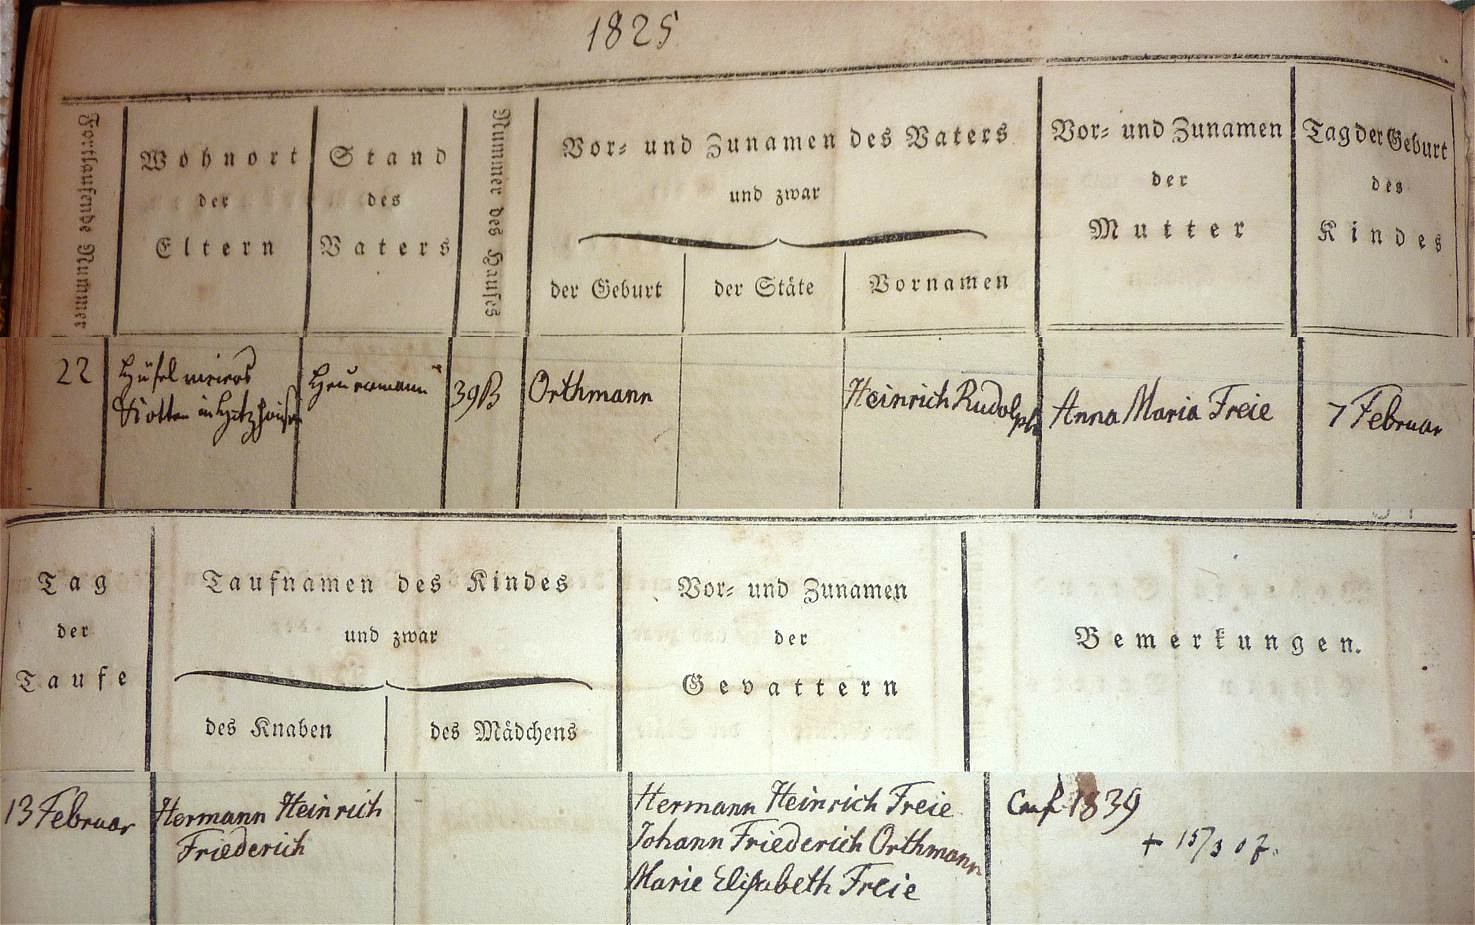 1825
Fortlaufende Nummer
Wohnort
der
Eltern
Stand
des
Vaters
Nummer des Hauses
Vor- und Zunamen des Vaters
und zwar
der Geburt
der Stäte
Vornamen
Vor- und Zunamen
der
Mutter
Tag der Geburt
des
Kindes
22
Kotten in
Heuermann
39B
Orthmann
Heinrich Rudolph
Anna Maria Freie
7 Februar
Tag
der
Taufe
Taufnamen des Kindes
und zwar
des Knaben
des Mädchens
Vor- und Zunamen
der
Gevattern
Bemerkungen.
13 Februar
Hermann Heinrich
Friederich
Hermann Heinrich Freie
Johann Friederich Orthmann
Marie Elisabeth Freie
Conf. 1839
+ 15/3 07.